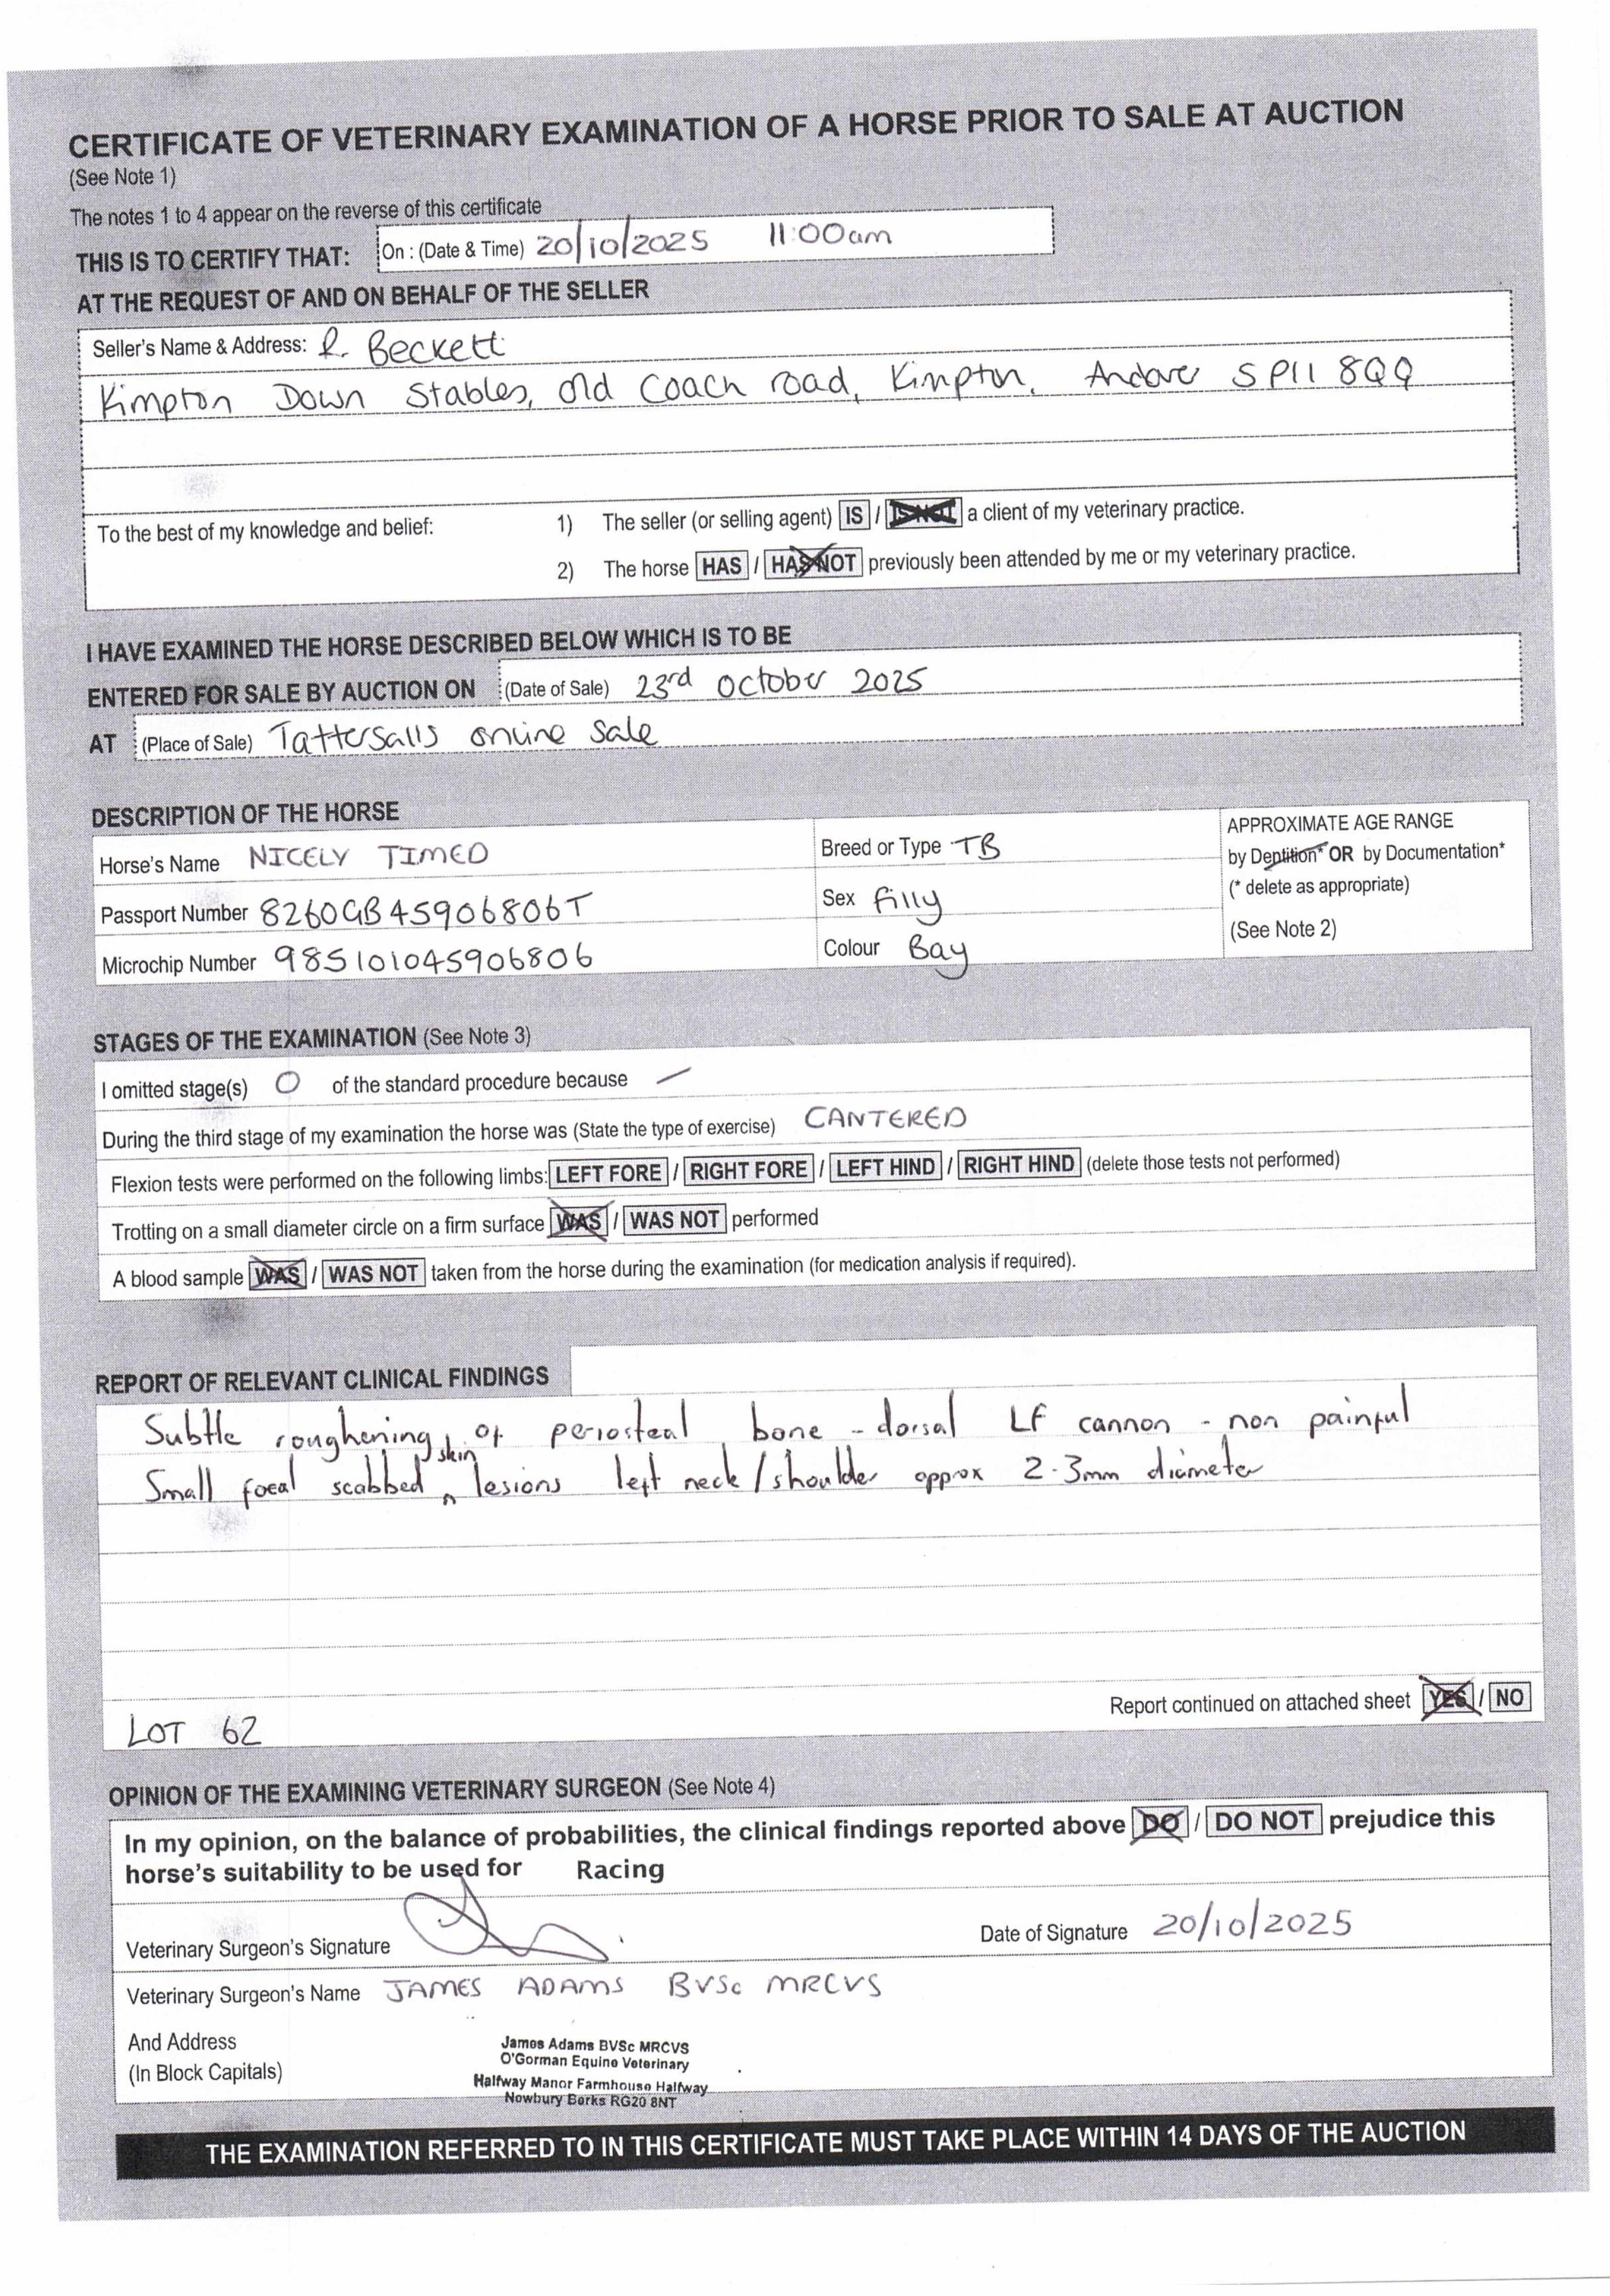 CERTIFICATE OF VETERINARY EXAMINATION OF A HORSE PRIOR TO SALE AT AUCTION
(See Note 1)
The notes 1 to 4 appear on the reverse of this certificate
THIS IS TO CERTIFY THAT: On : (Date & Time) 20/10/2025 11:00am
AT THE REQUEST OF AND ON BEHALF OF THE SELLER
Seller's Name & Address: R. Beckett
Kimpton Down Stables, Old Coach road, Kimpton, Andover SP11 8QQ
To the best of my knowledge and belief: 1) The seller (or selling agent) IS / IS NOT a client of my veterinary practice.
2) The horse HAS / HAS NOT previously been attended by me or my veterinary practice.
I HAVE EXAMINED THE HORSE DESCRIBED BELOW WHICH IS TO BE
ENTERED FOR SALE BY AUCTION ON (Date of Sale) 23rd October 2025
AT (Place of Sale) Tattersalls online Sale
DESCRIPTION OF THE HORSE
Horse's Name NICELY TIMED
Passport Number 8260GB45906806T
Microchip Number 985101045906806
Breed or Type TB
Sex Filly
Colour Bay
APPROXIMATE AGE RANGE
by Dentition* OR by Documentation*
(* delete as appropriate)
(See Note 2)
STAGES OF THE EXAMINATION (See Note 3)
I omitted stage(s) O of the standard procedure because —
During the third stage of my examination the horse was (State the type of exercise) CANTERED
Flexion tests were performed on the following limbs: LEFT FORE / RIGHT FORE / LEFT HIND / RIGHT HIND (delete those tests not performed)
Trotting on a small diameter circle on a firm surface WAS / WAS NOT performed
A blood sample WAS / WAS NOT taken from the horse during the examination (for medication analysis if required).
REPORT OF RELEVANT CLINICAL FINDINGS
Subtle roughening of periosteal bone - dorsal LF cannon - non painful
Small focal scabbed skin lesions left neck/shoulder approx 2-3mm diameter
Report continued on attached sheet YES / NO
LOT 62
OPINION OF THE EXAMINING VETERINARY SURGEON (See Note 4)
In my opinion, on the balance of probabilities, the clinical findings reported above DO / DO NOT prejudice this
horse's suitability to be used for Racing
Veterinary Surgeon's Signature
Date of Signature 20/10/2025
Veterinary Surgeon's Name JAMES ADAMS BVSc MRCVS
And Address
(In Block Capitals)
James Adams BVSc MRCVS
O'Gorman Equine Veterinary
Halfway Manor Farmhouse Halfway
Newbury Berks RG20 8NT
THE EXAMINATION REFERRED TO IN THIS CERTIFICATE MUST TAKE PLACE WITHIN 14 DAYS OF THE AUCTION